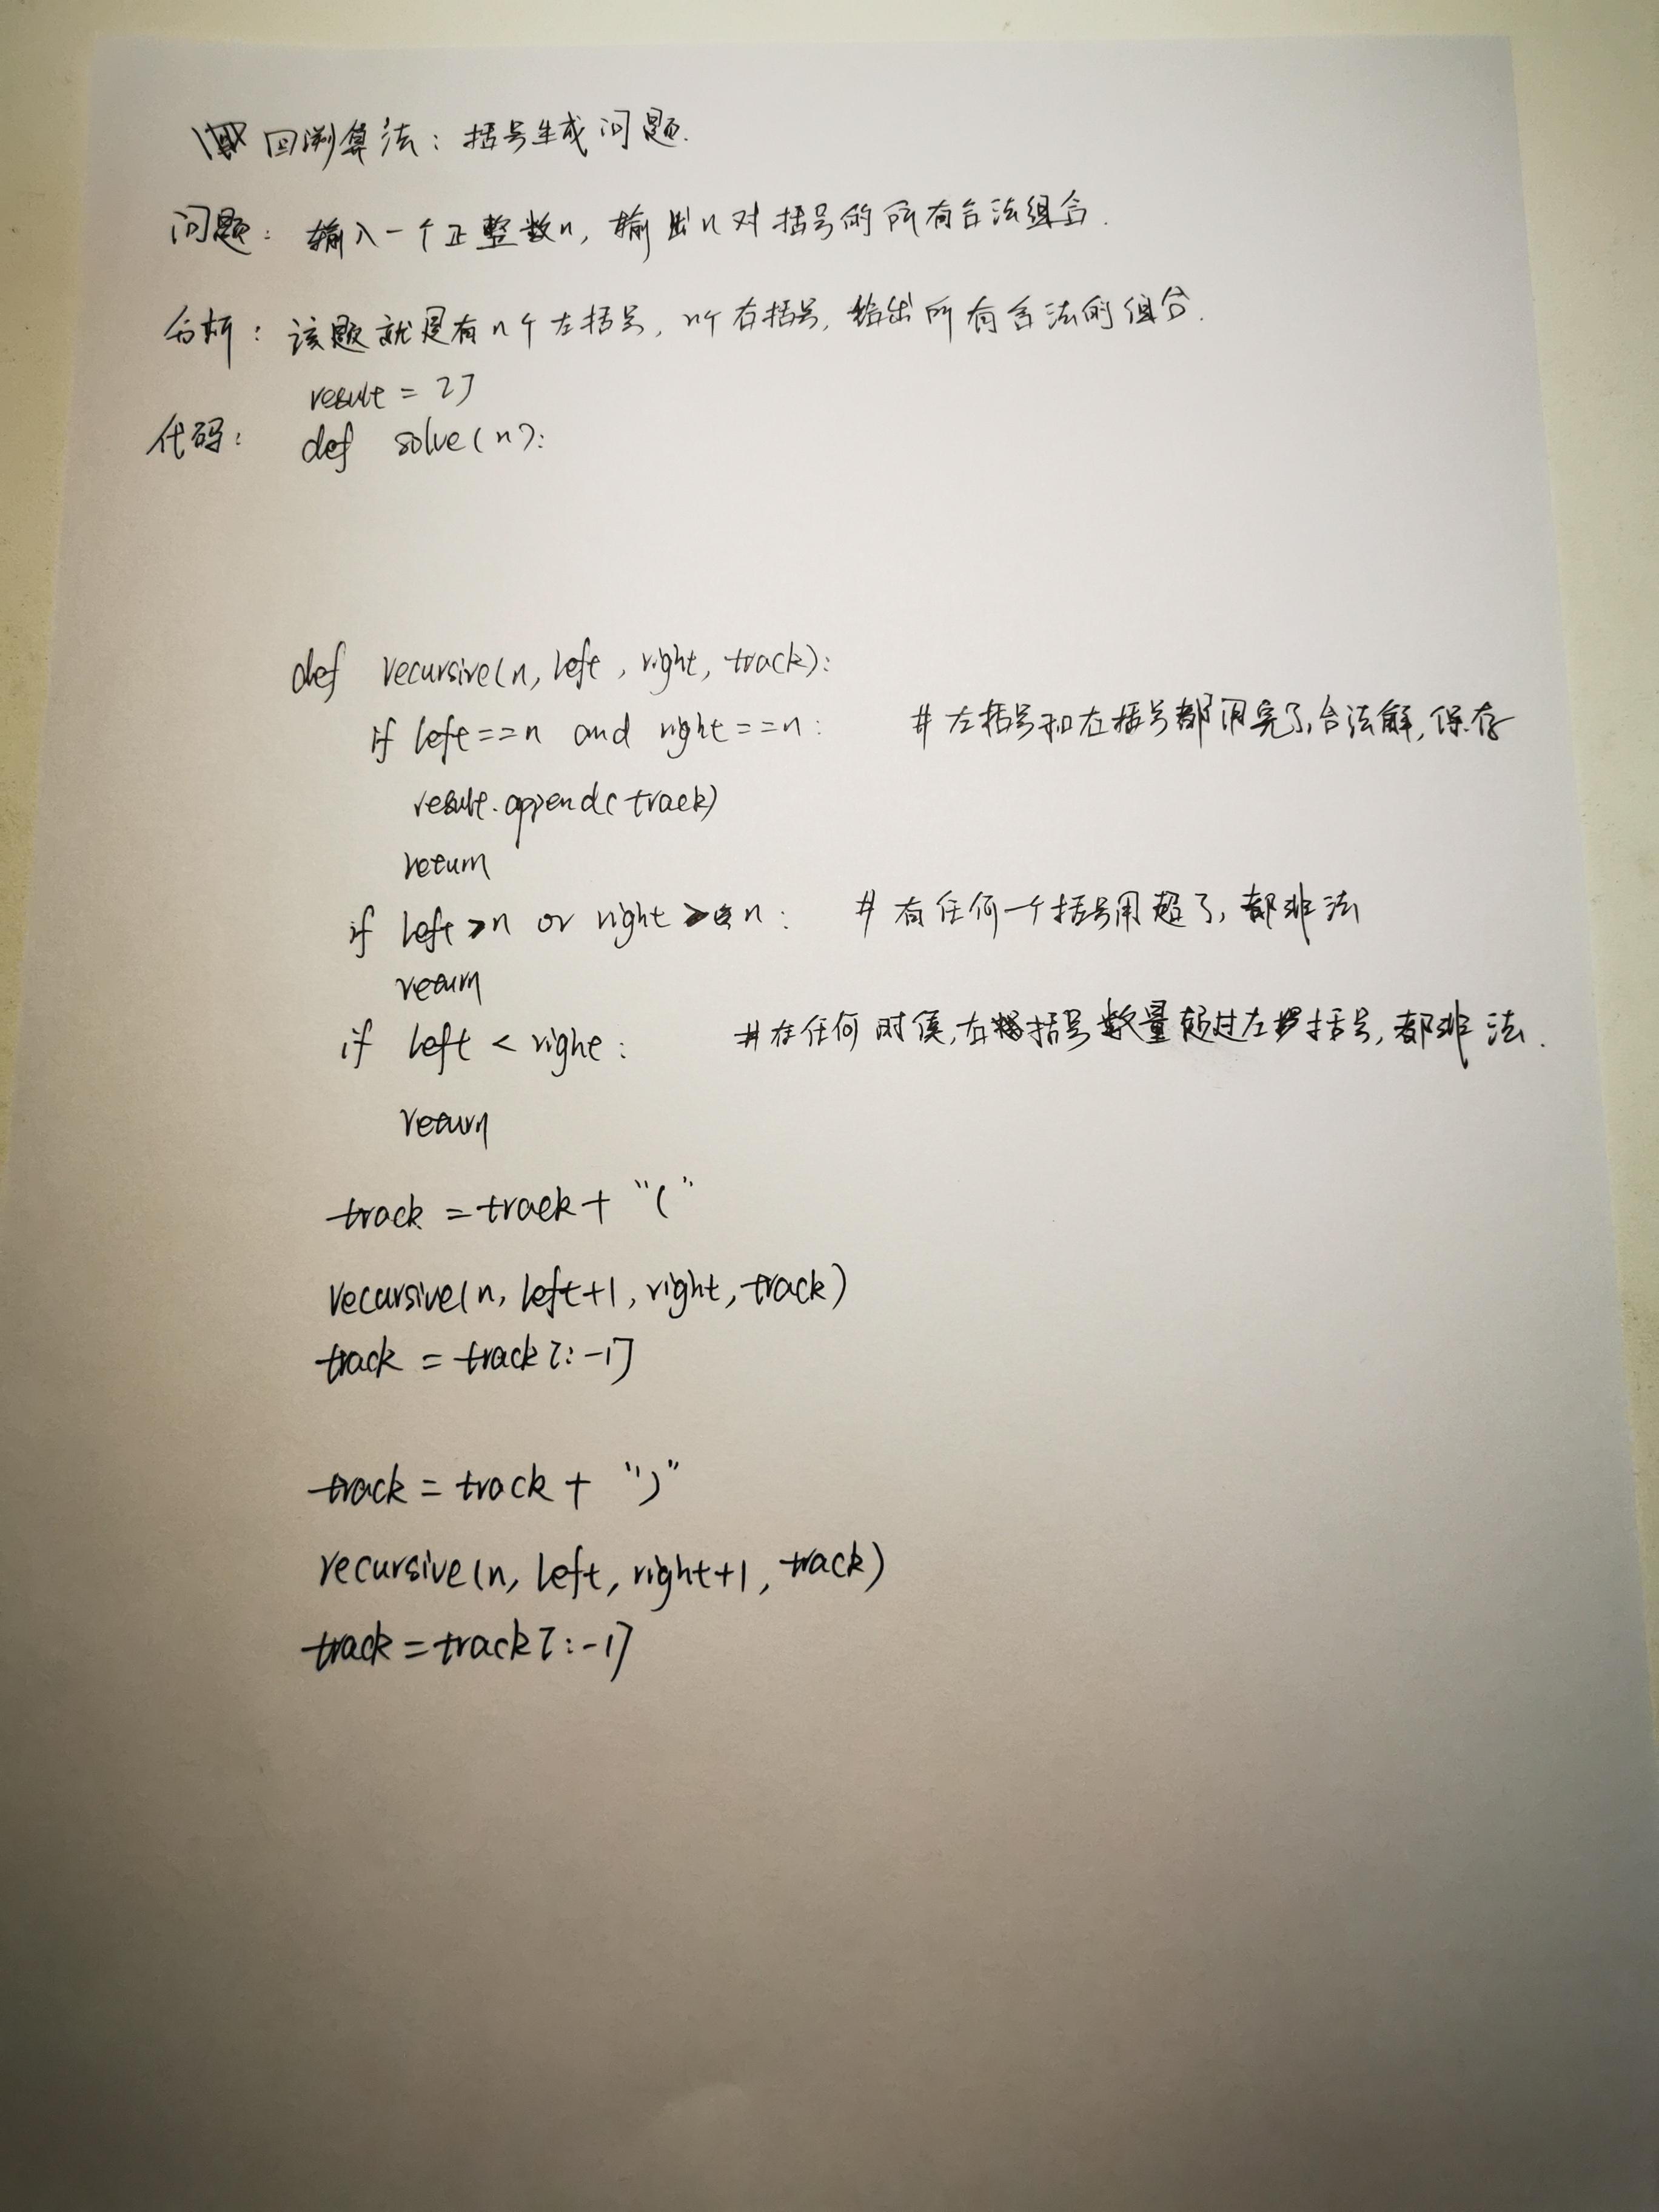 回溯算法：括号生成问题.
问题：输入一个正整数n，输出n对括号的所有合法组合.
分析：该题就是有n个左括号，n个右括号，给出所有合法的组合.
result = []
代码： def solve(n):
def recursive(n, left, right, track):
if left==n and right==n: # 左括号和右括号都用完了，合法解，保存
result.append(track)
return
if left>n or right>n: # 有任何一个括号用超了，都非法
return
if left < right: # 在任何时候，右括号数量超过左括号，都非法.
return
track = track + "("
recursive(n, left+1, right, track)
track = track[:-1]
track = track + ")"
recursive(n, left, right+1, track)
track = track[:-1]